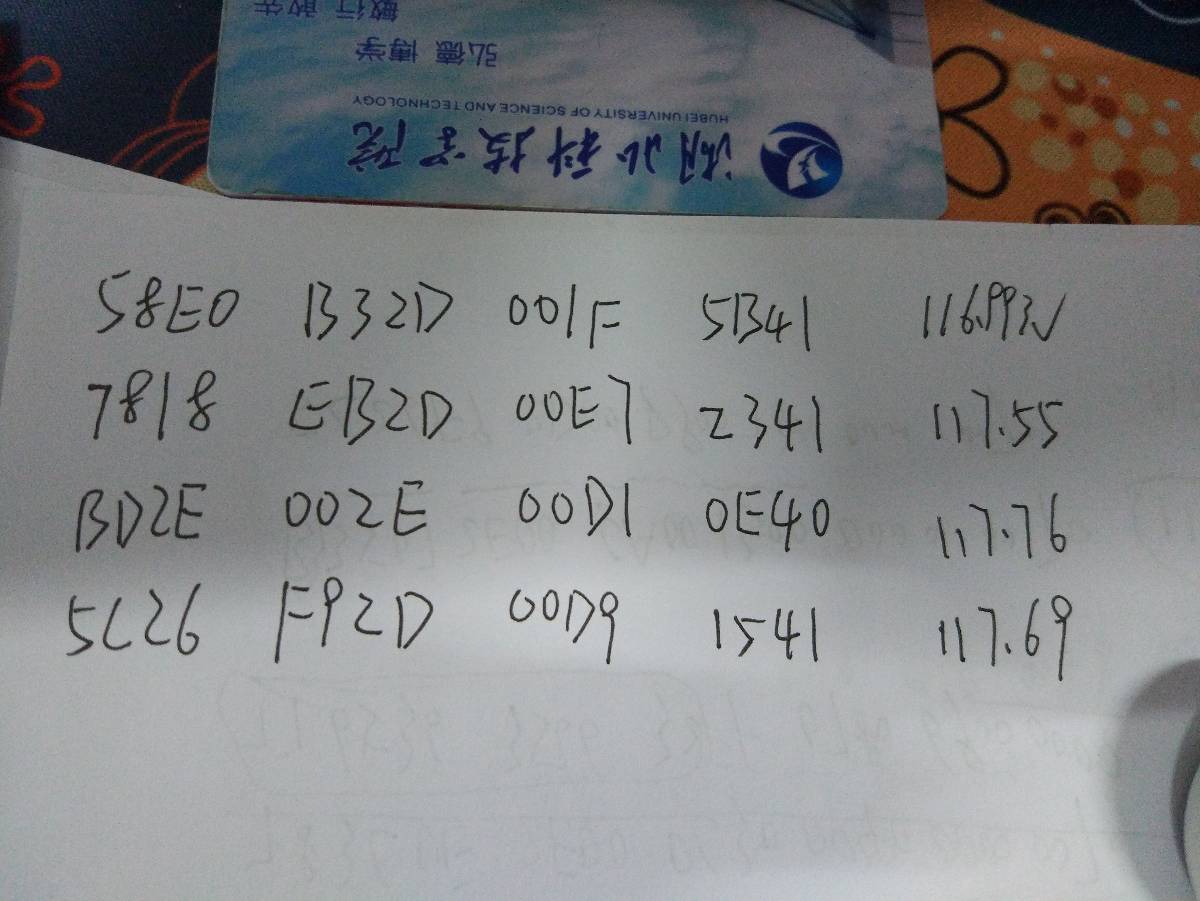 敏行 敢先
弘德 博学
HUBEI UNIVERSITY OF SCIENCE AND TECHNOLOGY
湖北科技学院
58E0 B32D 001F 5B41 116.993V
7818 EB2D 00E7 2341 117.55
BD2E 002E 00D1 0E40 117.76
5C26 F92D 00D9 1541 117.69